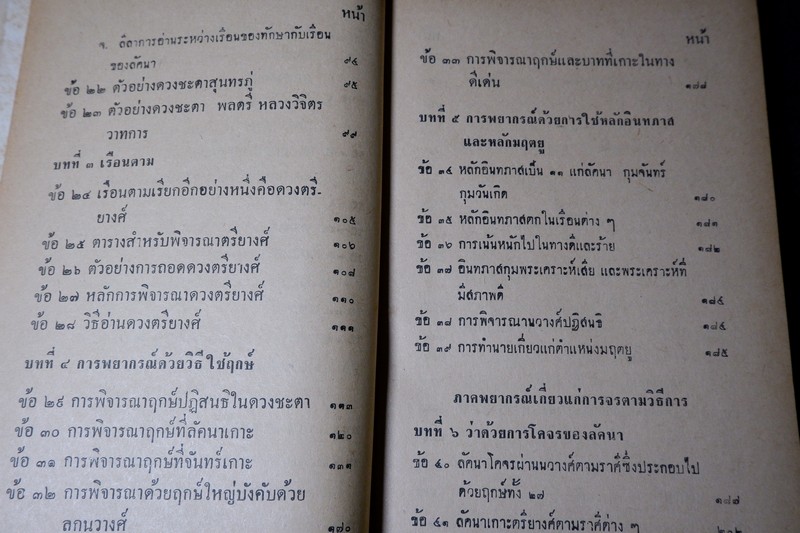 หน้า
จ. ลีลาการอ่านระหว่างเรือนของทักษากับเรือน
ของลัคนา ๙๔
ข้อ ๒๒ ตัวอย่างดวงชะตาสุนทรภู่ ๙๕
ข้อ ๒๓ ตัวอย่างดวงชะตา พลตรี หลวงวิจิตร
วาทการ ๙๙
บทที่ ๓ เรือนตาม
ข้อ ๒๔ เรือนตามเรียกอีกอย่างหนึ่งคือดวงตรี-
ยางศ์ ๑๐๕
ข้อ ๒๕ ตารางสำหรับพิจารณาตรียางศ์ ๑๐๖
ข้อ ๒๖ ตัวอย่างการถอดดวงตรียางศ์ ๑๐๘
ข้อ ๒๗ หลักการพิจารณาดวงตรียางศ์ ๑๑๐
ข้อ ๒๘ วิธีอ่านดวงตรียางศ์ ๑๑๑
บทที่ ๔ การพยากรณ์ด้วยวิธีใช้ฤกษ์
ข้อ ๒๙ การพิจารณาฤกษ์ปฏิสนธิในดวงชะตา ๑๑๓
ข้อ ๓๐ การพิจารณาฤกษ์ที่ลัคนาเกาะ ๑๒๐
ข้อ ๓๑ การพิจารณาฤกษ์ที่จันทร์เกาะ ๑๓๑
ข้อ ๓๒ การพิจารณาด้วยฤกษ์ใหญ่บังคับด้วย
ลูกนวางศ์ ๑๗๐
หน้า
ข้อ ๓๓ การพิจารณาฤกษ์และบาทที่เกาะในทาง
ดีเด่น
บทที่ ๕ การพยากรณ์ด้วยการใช้หลักอินทภาส
และหลักมฤตยู
ข้อ ๓๔ หลักอินทภาสเป็น ๑๑ แก่ลัคนา กุมจันทร์
กุมวันเกิด ๑๘๐
ข้อ ๓๕ หลักอินทภาสตกในเรือนต่าง ๆ ๑๘๑
ข้อ ๓๖ การเน้นหนักไปในทางดีและร้าย ๑๘๒
ข้อ ๓๗ อินทภาสกุมพระเคราะห์เสีย และพระเคราะห์ที่
มีสภาพดี ๑๘๔
ข้อ ๓๘ การพิจารณานวางศ์ปฏิสนธิ ๑๘๔
ข้อ ๓๙ การทำนายเกี่ยวแก่ตำแหน่งมฤตยู ๑๘๕
ภาคพยากรณ์เกี่ยวแก่การจรตามวิธีการ
บทที่ ๖ ว่าด้วยการโคจรของลัคนา
ข้อ ๔๐ ลัคนาโคจรผ่านนวางศ์ตามราศีซึ่งประกอบไป
ด้วยฤกษ์ทั้ง ๒๗ ๑๘๘
ข้อ ๔๑ ลัคนาเกาะตรียางศ์ตามราศีต่าง ๆ